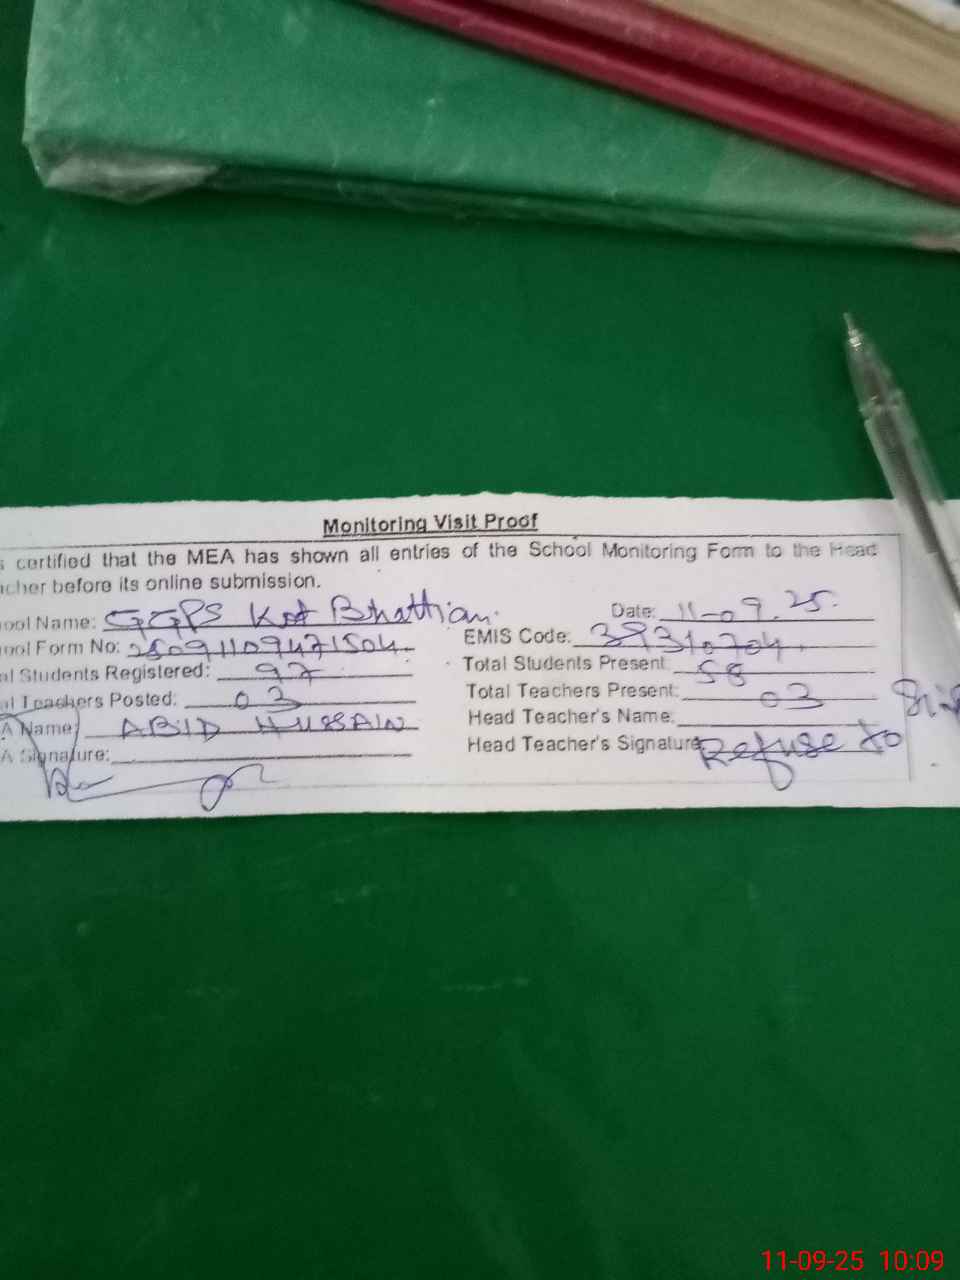 Monitoring Visit Proof
s certified that the MEA has shown all entries of the School Monitoring Form to the Head
acher before its online submission.
ool Name: GGPS Kot Bhattian. Date: 11-09.25.
ool Form No: 25091109471504 EMIS Code: 39310704
al Students Registered: 97 Total Students Present: 58
al Teachers Posted: 03 Total Teachers Present: 03
A Name: ABID HUSSAIN Head Teacher's Name:
A Signature: Head Teacher's Signature Refuse to
11-09-25 10:09